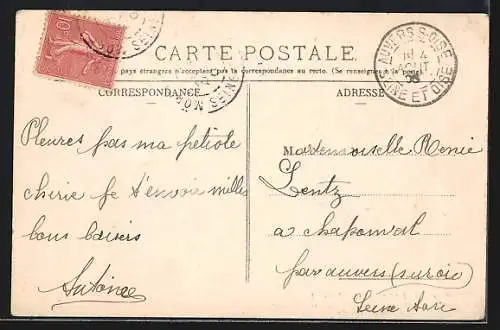 CARTE POSTALE
pays étrangers n'acceptent pas la correspondance au recto. (Se renseigner à la poste)
CORRESPONDANCE
ADRESSE
AUVERS S-OISE
4
AOUT
SEINE ET OISE
10
Pleures pas ma petiote
cherie je t'envoie milles
bons baisers
Antoine
Mademoiselle Renée
Lentz
a chaponval
par auvers (sur oise)
Seine